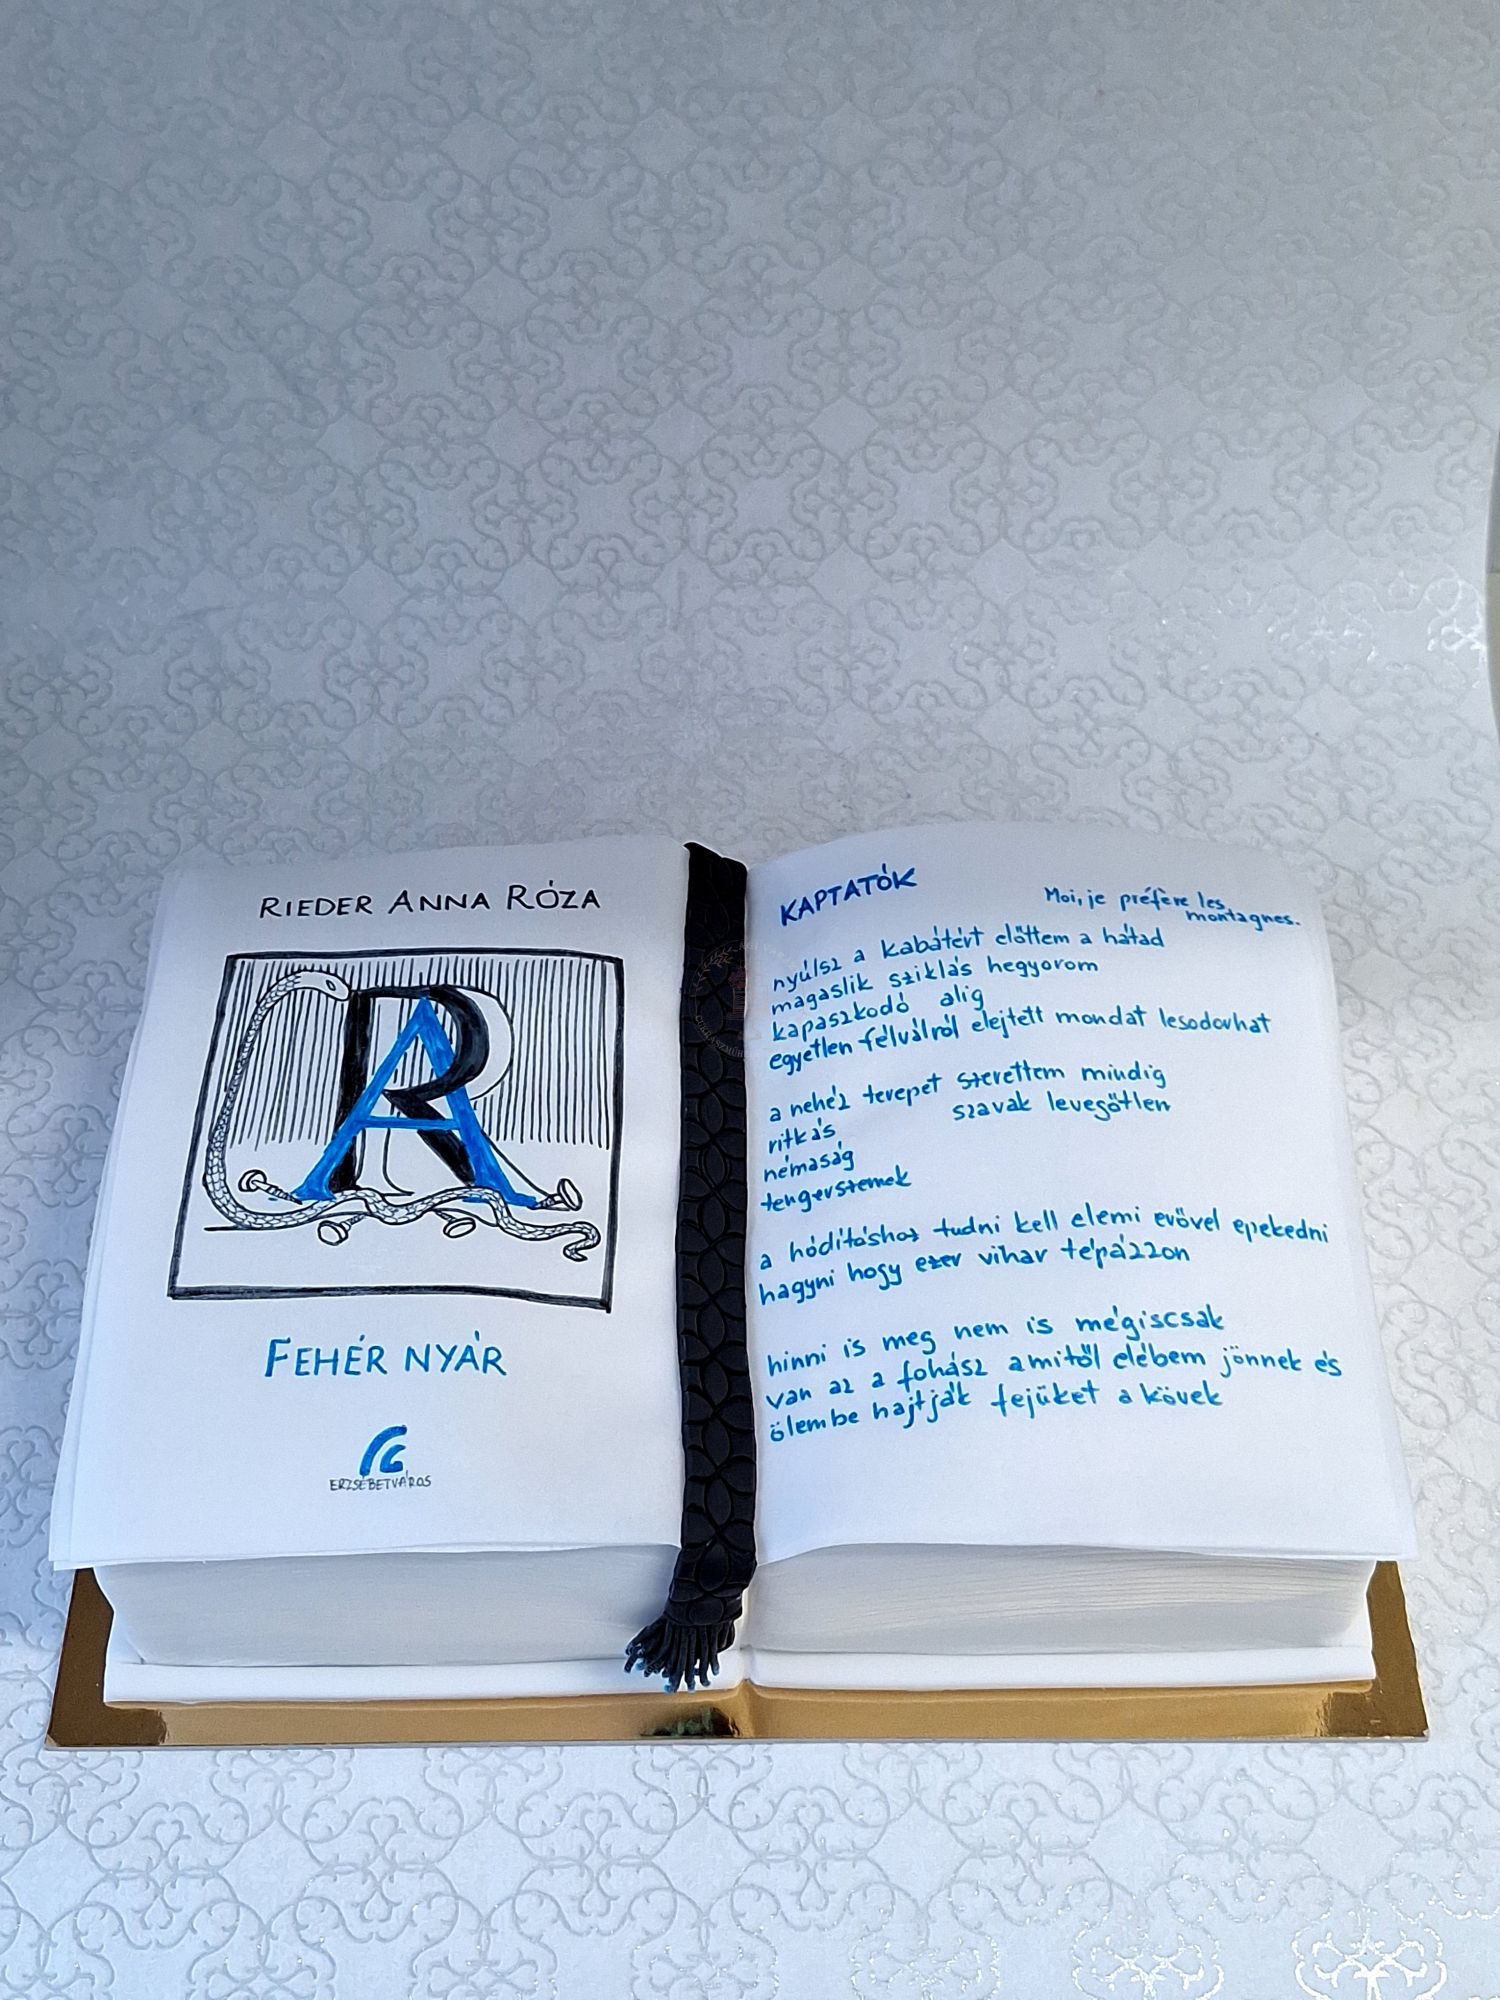 RIEDER ANNA RÓZA
RA
FEHÉR NYÁR
ERZSÉBETVÁROS
KAPTATÓK
Moi, je préfère les
montagnes.
nyúlsz a kabátért előttem a hátad
magaslik sziklás hegyorom
kapaszkodó alig
egyetlen félvállról elejtett mondat lesodorhat
a nehéz terepet szerettem mindig
ritkás szavak levegőtlen
némaság
tengerszemek
a hódításhoz tudni kell elemi erővel epekedni
hagyni hogy ezer vihar tépázzon
hinni is meg nem is mégiscsak
van az a fohász amitől elébem jönnek és
ölembe hajtják fejüket a kövek